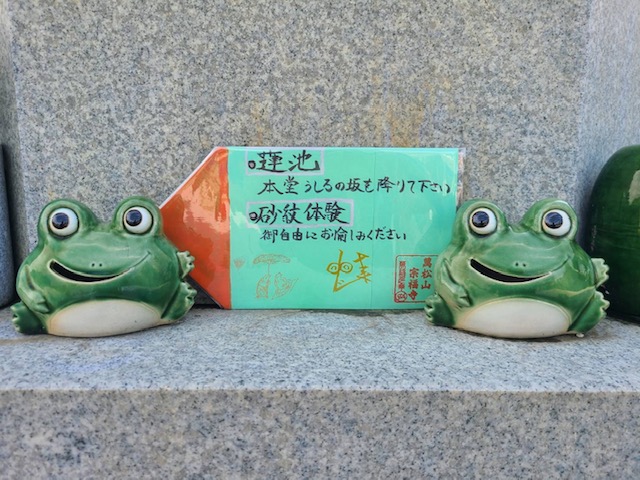 蓮池
本堂うしろの坂を降りて下さい
砂紋体験
御自由にお愉しみください
萬松山
宗福寺